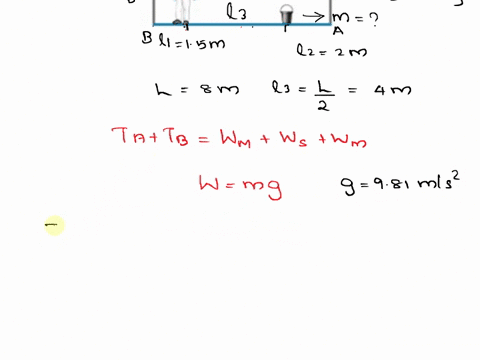 l3 → m = ?
B A
l1 = 1.15m l2 = 2m
L = 8m l3 = L/2 = 4m
TA + TB = WM + Ws + Wm
W = mg g = 9.81 m/s²